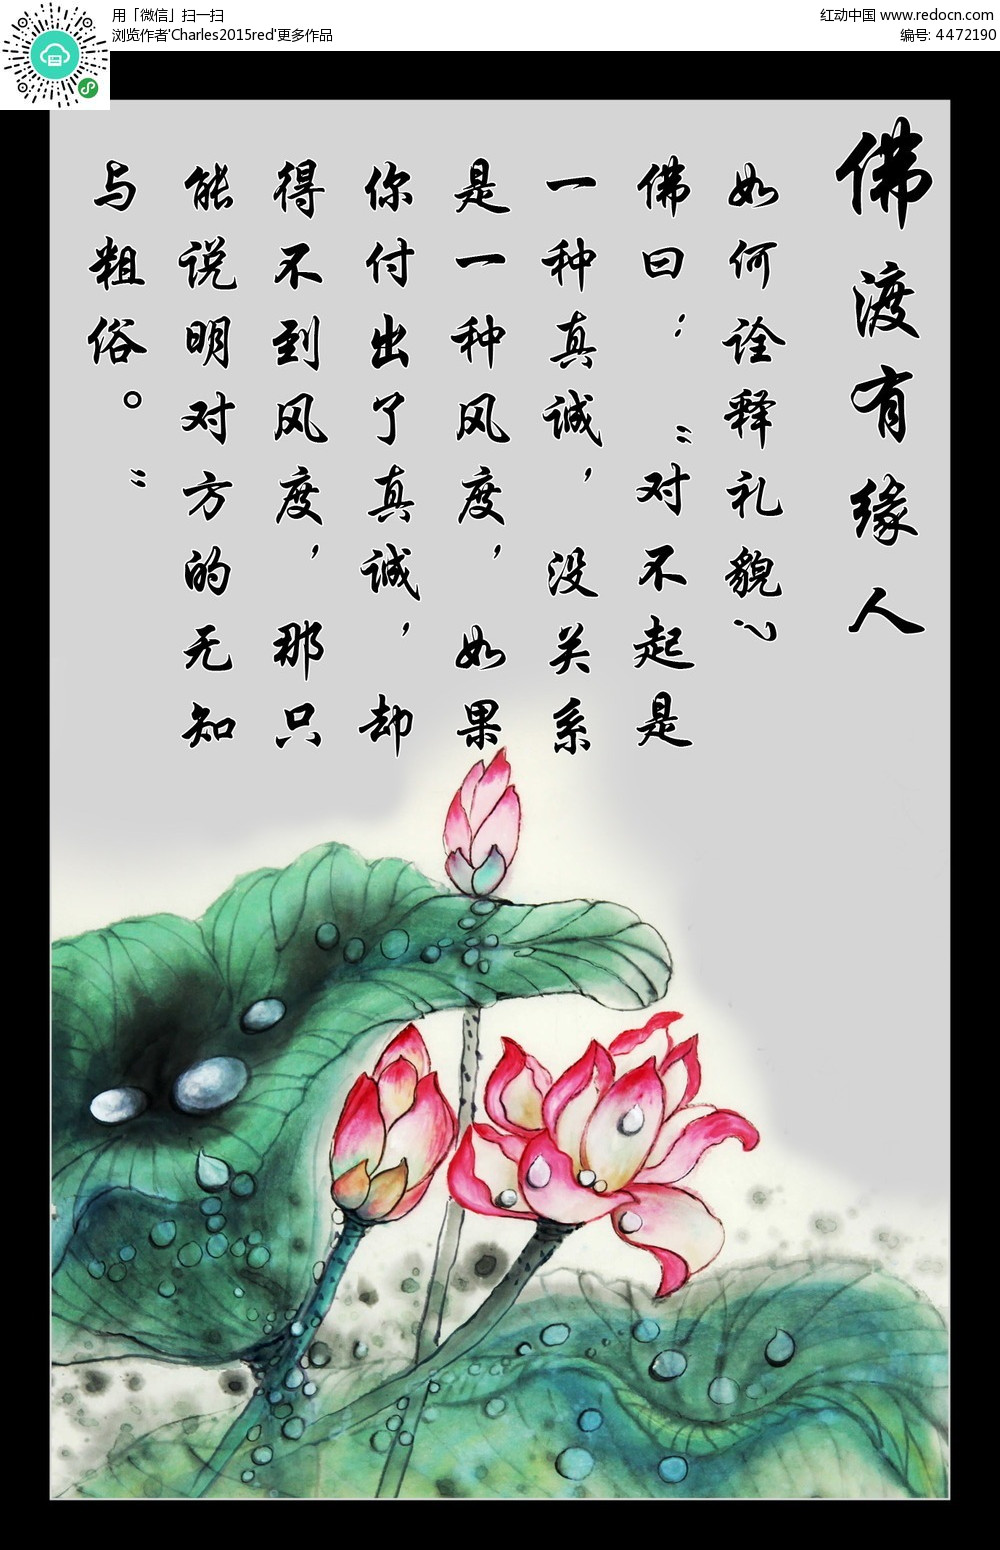 用「微信」扫一扫
浏览作者'Charles2015red'更多作品
红动中国 www.redocn.com
编号: 4472190
佛渡有缘人
如何诠释礼貌?
佛曰:"对不起是
一种真诚,没关系
是一种风度,如果
你付出了真诚,却
得不到风度,那只
能说明对方的无知
与粗俗。"